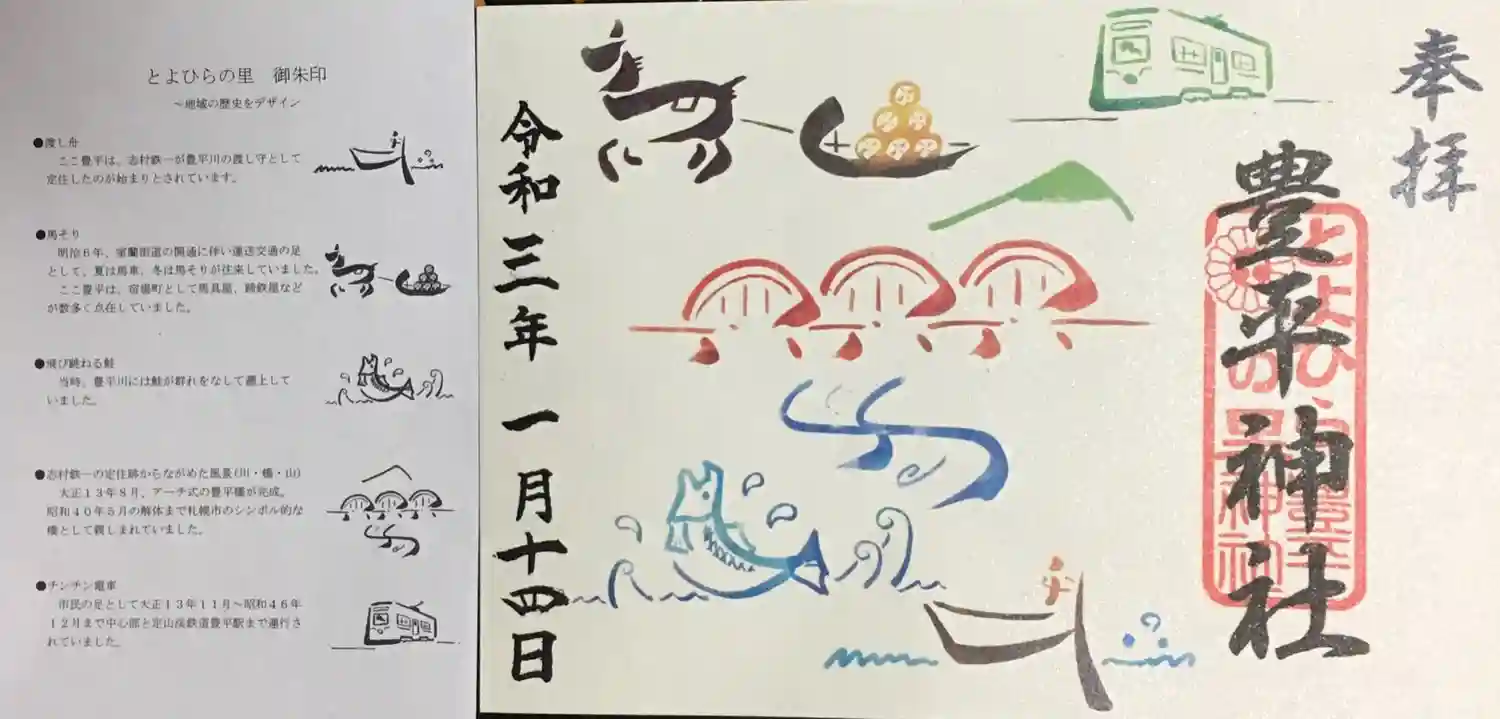 とよひらの里　御朱印
～地域の歴史をデザイン
●渡し舟
ここ豊平は、志村鉄一が豊平川の渡し守として
定住したのが始まりとされています。
●馬そり
明治６年、室蘭街道の開通に伴い運送交通の足
として、夏は馬車、冬は馬そりが往来していました。
ここ豊平は、宿場町として馬具屋、蹄鉄屋など
が数多く点在していました。
●飛び跳ねる鮭
当時、豊平川には鮭が群れをなして遡上して
いました。
●志村鉄一の定住跡からながめた風景(川・橋・山)
大正１３年８月、アーチ式の豊平橋が完成。
昭和４０年５月の解体まで札幌市のシンボル的な
橋として親しまれていました。
●チンチン電車
市民の足として大正１３年１１月～昭和４６年
１２月まで中心部と定山渓鉄道豊平駅まで運行さ
れていました。
奉拝
豊平神社
とよひら
の里
豊平
神社
令和三年一月十四日